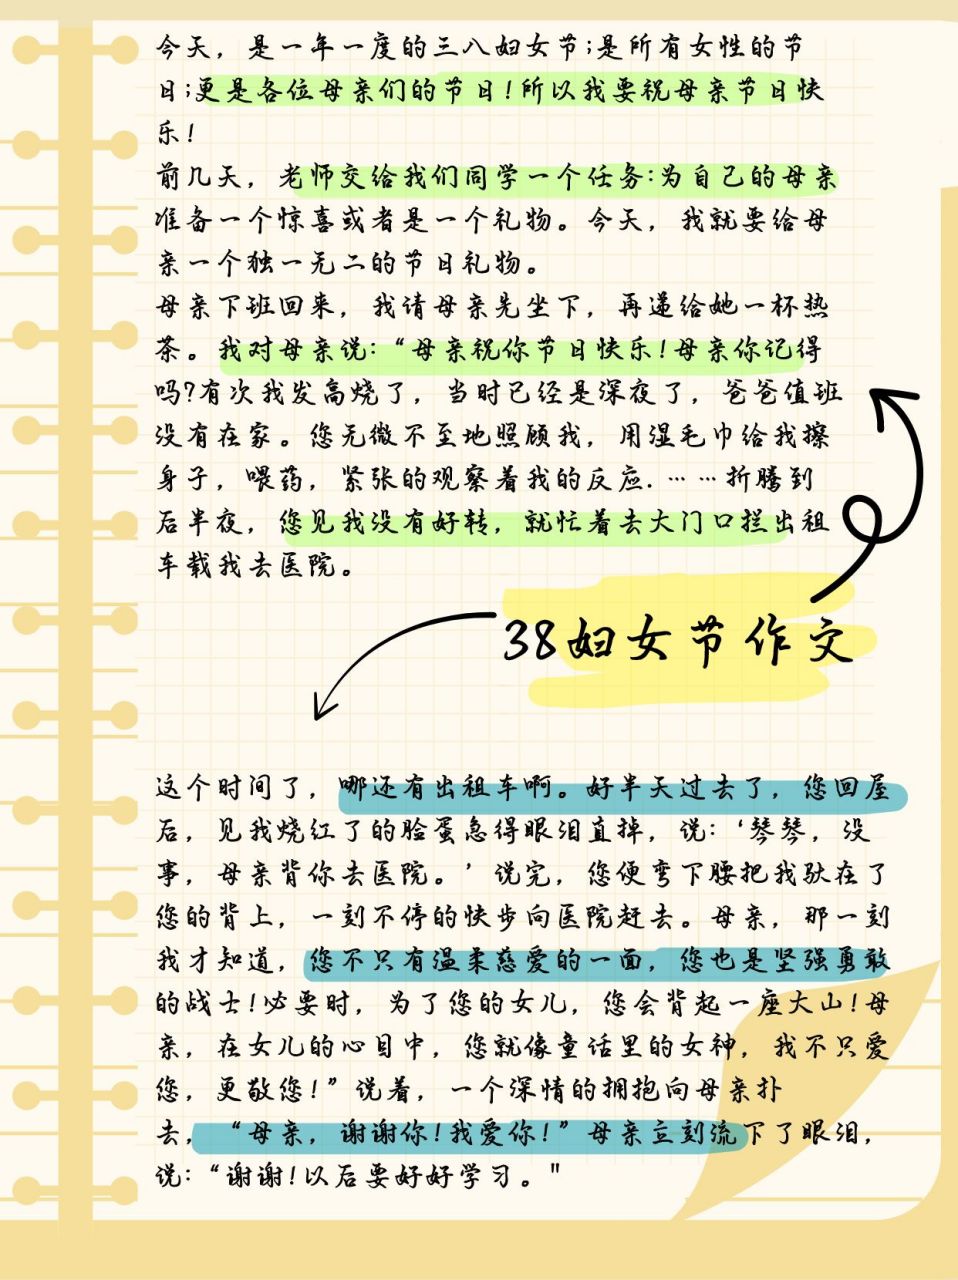 今天，是一年一度的三八妇女节;是所有女性的节
日;更是各位母亲们的节日!所以我要祝母亲节日快
乐!
前几天，老师交给我们同学一个任务:为自己的母亲
准备一个惊喜或者是一个礼物。今天，我就要给母
亲一个独一无二的节日礼物。
母亲下班回来，我请母亲先坐下，再递给她一杯热
茶。我对母亲说:“母亲祝你节日快乐!母亲你记得
吗?有次我发高烧了，当时已经是深夜了，爸爸值班
没有在家。您无微不至地照顾我，用湿毛巾给我擦
身子，喂药，紧张的观察着我的反应.……折腾到
后半夜，您见我没有好转，就忙着去大门口拦出租
车载我去医院。
38妇女节作文
这个时间了，哪还有出租车啊。好半天过去了，您回屋
后，见我烧红了的脸蛋急得眼泪直掉，说:‘琴琴，没
事，母亲背你去医院。’说完，您便弯下腰把我驮在了
您的背上，一刻不停的快步向医院赶去。母亲，那一刻
我才知道，您不只有温柔慈爱的一面，您也是坚强勇敢
的战士!必要时，为了您的女儿，您会背起一座大山!母
亲，在女儿的心目中，您就像童话里的女神，我不只爱
您，更敬您!”说着，一个深情的拥抱向母亲扑
去，“母亲，谢谢你!我爱你!”母亲立刻流下了眼泪，
说:“谢谢!以后要好好学习。"